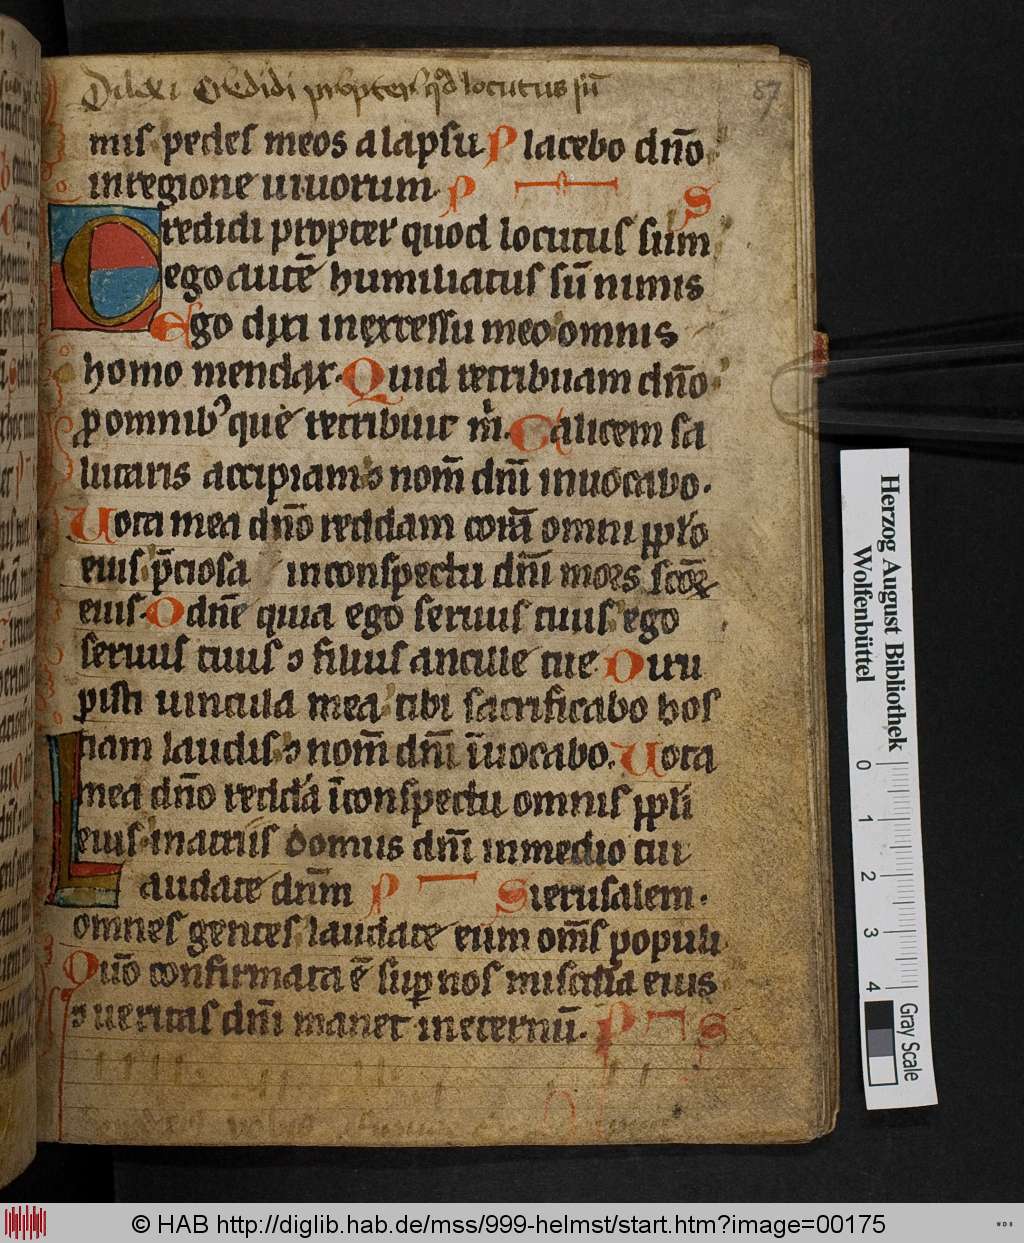 Dilexi Credidi propter qd locutus sū
87
mis pedes meos a lapsu P lacebo dño
in regione uiuorum P S
Credidi propter quod locutus sum
ego autē humiliatus sū nimis
Ego dixi in excessu meo omnis
homo mendax. Quid retribuam dño
ꝓ omnibꝰ que retribuit m̍. Calicem sa
lutaris accipiam ⁊ nom̄ dn̄i inuocabo.
Uota mea dño reddam corā omni pplo
eius p̄ciosa in conspectu dn̄i mors scōꝝ
eius. O dn̄e quia ego seruus tuus ego
seruus tuus ⁊ filius ancille tue Diru
pisti uincula mea tibi sacrificabo hos
tiam laudis ⁊ nom̄ dn̄i īuocabo. Uota
mea dño reddā ī conspectu omnis ppli
eius in atriis domus dn̄i in medio tui
Laudate dn̄m P S ierusalem.
omnes gentes laudate eum om̄s populi
Quō confirmata ē suꝑ nos miscd̄ia eius
⁊ ueritas dn̄i manet in eternū. P S
Herzog August Bibliothek
Wolfenbüttel
0 1 2 3 4
Gray Scale
© HAB http://diglib.hab.de/mss/999-helmst/start.htm?image=00175